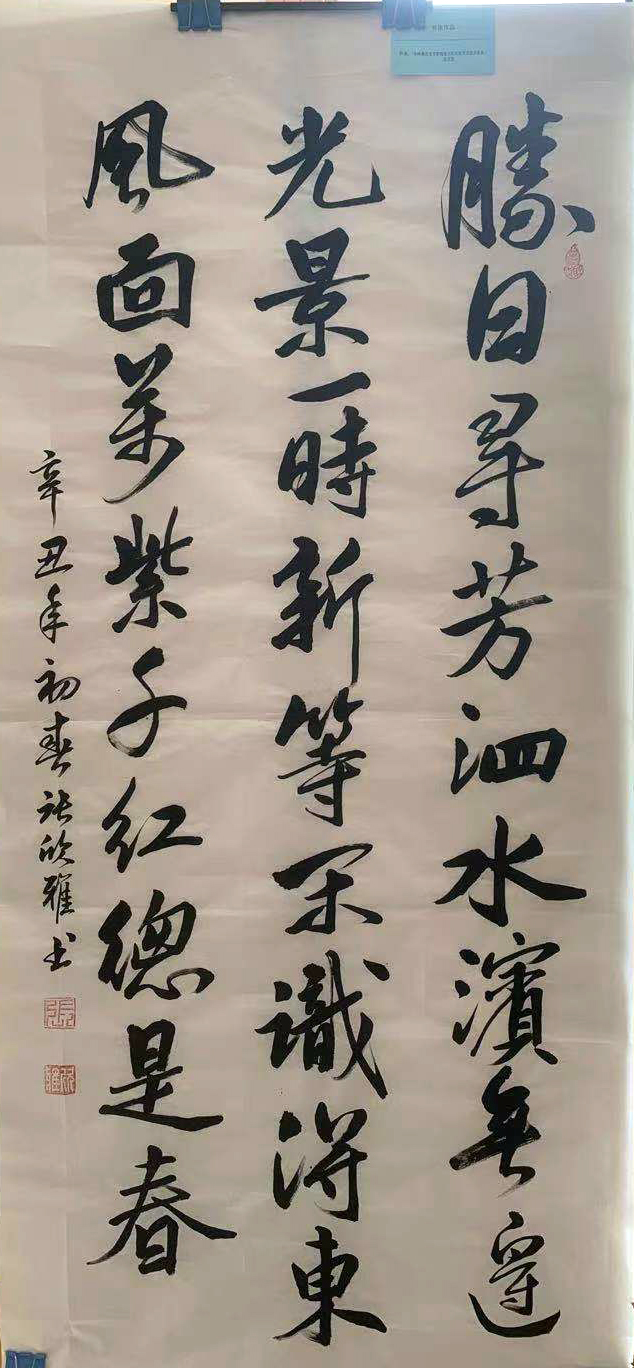 勝日尋芳泗水濱無邊
光景一時新等閑識得東
風面萬紫千紅總是春
辛丑年初春張欣雅书